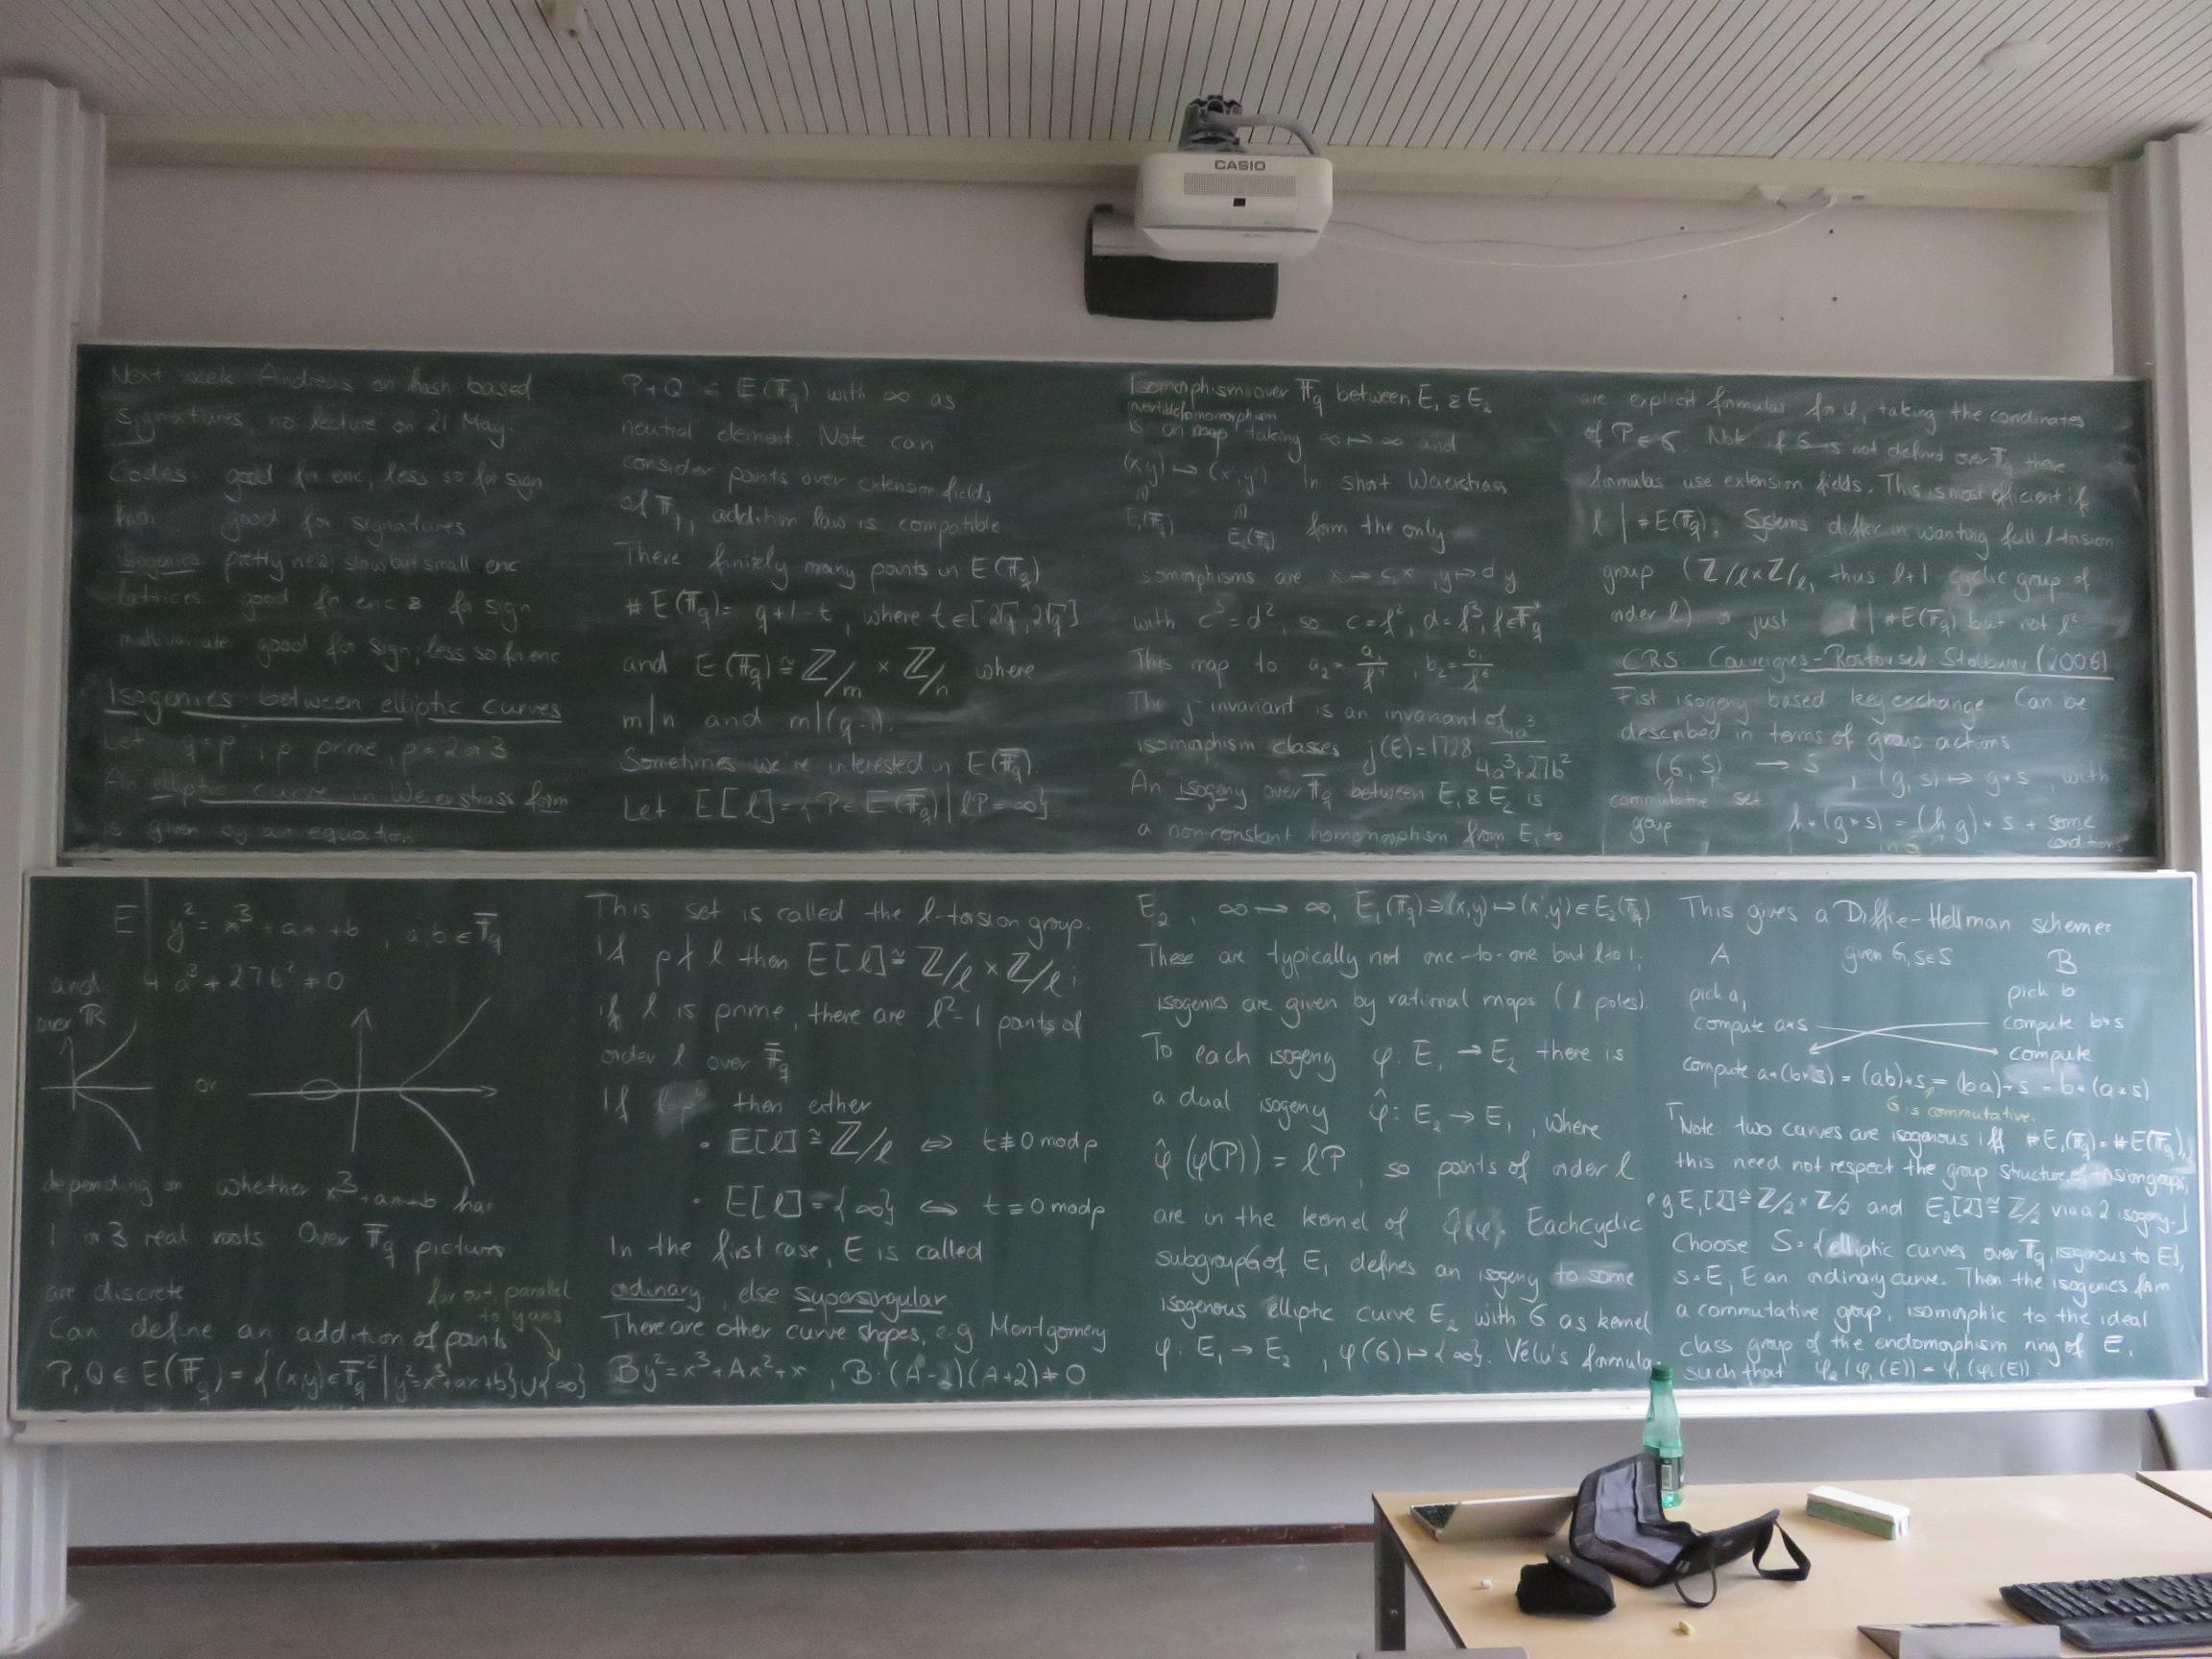 CASIO
Next week Andreas on hash based
signatures, no lecture on 21 May.
Codes good for enc, less so for sign
hash good for signatures
isogenies pretty new; slow but small enc
lattices good for enc & for sign
multivariate good for sign, less so for enc
Isogenies between elliptic curves
Let q=p , p prime, p≠2 or 3
An elliptic curve in Weierstrass form
is given by an equation
E y² = x³ + ax + b , a,b ∈ 𝔽q
and 4a³ + 27b² ≠ 0
over ℝ
or
depending on whether x³+ax+b has
1 or 3 real roots Over 𝔽q pictures
are discrete
far out, parallel
to y axis
Can define an addition of points
P, Q ∈ E(𝔽q) = {(x,y) ∈ 𝔽q² | y²=x³+ax+b} ∪ {∞}
P+Q ∈ E(𝔽q) with ∞ as
neutral element. Note can
consider points over extension fields
of 𝔽q, addition law is compatible
There finitely many points in E(𝔽q)
#E(𝔽q) = q+1-t, where t∈[-2√q, 2√q]
and E(𝔽q) ≅ ℤ/m × ℤ/n where
m|n and m|(q-1).
Sometimes we're interested in E(𝔽̄q).
Let E[ℓ] = {P∈E(𝔽̄q) | ℓP=∞}
This set is called the ℓ-torsion group.
If p∤ℓ then E[ℓ] ≅ ℤ/ℓ × ℤ/ℓ;
if ℓ is prime, there are ℓ²-1 points of
order ℓ over 𝔽̄q
If then either
• E[ℓ] ≅ ℤ/ℓ ⇔ t≢0 mod p
• E[ℓ] = {∞} ⇔ t≡0 mod p
In the first case, E is called
ordinary, else supersingular
There are other curve shapes, e.g Montgomery
By² = x³+Ax²+x , B·(A-2)(A+2)≠0
Isomorphism over 𝔽q between E₁ & E₂
is a map taking ∞ ↦ ∞ and
(x,y) ↦ (x',y') In short Weierstrass
E₁(𝔽q) E₂(𝔽q) form the only
isomorphisms are x→cx, y↦dy
with c³=d², so c=f², d=f³, f∈𝔽q*
This map to a₂=a₁/f⁴, b₂=b₁/f⁶
The j-invariant is an invariant of
isomorphism classes j(E)=1728 4a³/4a³+27b²
An isogeny over 𝔽q between E₁ & E₂ is
a non-constant homomorphism from E₁ to
E₂ , ∞ → ∞, E₁(𝔽q)∋(x,y)↦(x',y')∈E₂(𝔽q)
These are typically not one-to-one but ℓ to 1,
isogenies are given by rational maps (ℓ poles).
To each isogeny φ: E₁ → E₂ there is
a dual isogeny φ̂: E₂ → E₁ , where
φ̂(φ(P)) = ℓP, so points of order ℓ
are in the kernel of φ̂(φ). Each cyclic
subgroup G of E₁ defines an isogeny to some
isogenous elliptic curve E₂ with G as kernel
φ: E₁ → E₂ , φ(G)↦{∞}. Vélu's formula
are explicit formulas for φ, taking the coordinates
of P∈G. Note if G is not defined over 𝔽q these
formulas use extension fields. This is most efficient if
ℓ | #E(𝔽q). Systems differ in wanting full ℓ-torsion
group (ℤ/ℓ×ℤ/ℓ, thus ℓ+1 cyclic group of
order ℓ) or just ℓ | #E(𝔽q) but not ℓ²
CRS. Couveignes-Rostovsev-Stolbunov (2006)
Fist isogeny based key exchange. Can be
described in terms of group actions
(G, S) → S , (g,s) ↦ g*s, with
commutative set
group h*(g*s) = (h g)*s + some
in G conditions
This gives a Diffie-Hellman scheme:
A given G, s∈S B
pick a, pick b
compute a*s compute b*s
compute
compute a*(b*s) = (ab)*s = (ba)*s = b*(a*s)
G is commutative.
Note two curves are isogenous iff #E₁(𝔽q)=#E₂(𝔽q),
this need not respect the group structure of torsion groups,
e.g E₁[2]≅ℤ/2×ℤ/2 and E₂[2]≅ℤ/2 via a 2 isogeny.]
Choose S={elliptic curves over 𝔽q isogenous to E},
s=E, E an ordinary curve. Then the isogenies form
a commutative group, isomorphic to the ideal
class group of the endomorphism ring of E,
such that φ₂(φ₁(E)) = φ₁(φ₂(E))